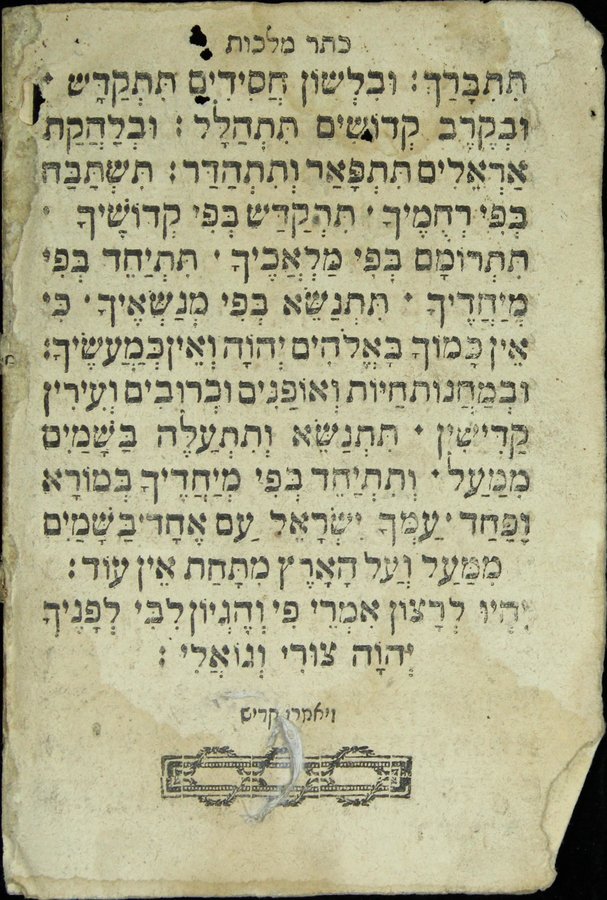 כתר מלכות
תִּתְבָּרַךְ: וּבִלְשׁוֹן חֲסִידִים תִּתְקַדָּשׁ ·
וּבְקֶרֶב קְדוֹשִׁים תִּתְהַלָּל: וּבְלַהֲקַת
אַרְאֵלִים תִּתְפָּאַר וְתִתְהַדַּר: תִּשְׁתַּבַּח
בְּפִי רְחֻמֶיךָ · תִּתְקַדַּשׁ בְּפִי קְדוֹשֶׁיךָ ·
תִּתְרוֹמָם בְּפִי מַלְאָכֶיךָ · תִּתְיַחֵד בְּפִי
מְיַחֲדֶיךָ · תִּתְנַשֵּׂא בְּפִי מְנַשְּׂאֶיךָ · כִּי
אֵין כָּמוֹךָ בָּאֱלֹהִים יְהוָֹה וְאֵין כְּמַעֲשֶׂיךָ:
וּבְמַחֲנוֹת חַיּוֹת וְאוֹפַנִּים וּכְרוּבִים וְעִירִין
קַדִּישִׁין · תִּתְנַשֵּׂא וְתִתְעַלֶּה בַּשָּׁמַיִם
מִמַּעַל · וְתִתְיַחֵד בְּפִי מְיַחֲדֶיךָ בְּמוֹרָא
וָפַחַד · עַמְּךָ יִשְׂרָאֵל עַם אֶחָד · בַּשָּׁמַיִם
מִמַּעַל וְעַל הָאָרֶץ מִתָּחַת אֵין עוֹד:
יִהְיוּ לְרָצוֹן אִמְרֵי פִי וְהֶגְיוֹן לִבִּי לְפָנֶיךָ
יְהוָֹה צוּרִי וְגוֹאֲלִי:
ויאמרו קדיש